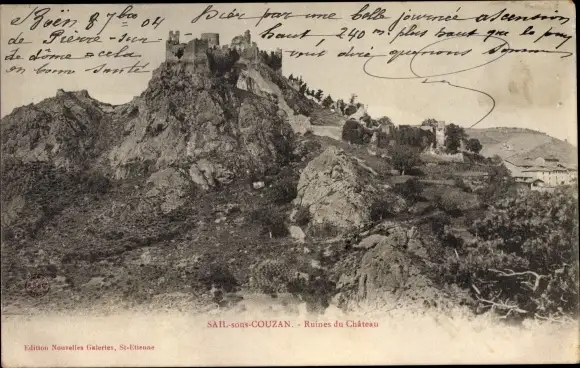 Boën 8 7bre 04
Hier par une belle journée ascension
de Pierre-sur-
haute 240 m. plus haut que le puy
de dôme
en bonne santé
SAIL-sous-COUZAN. - Ruines du Château
Edition Nouvelles Galeries, St-Etienne